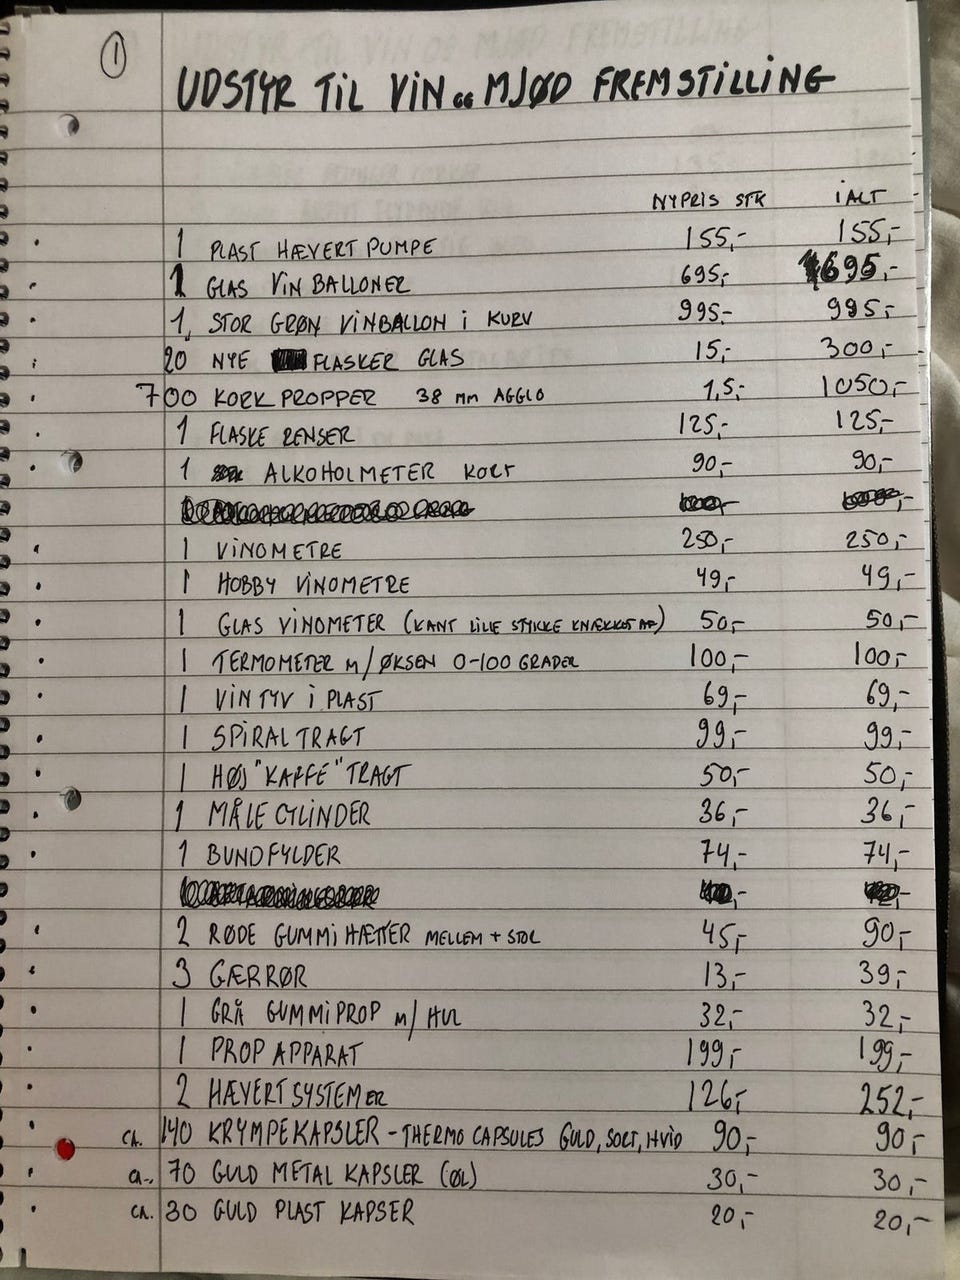 1
UDSTYR TIL VIN OG MJØD FREMSTILLING
NYPRIS STK IALT
1 PLAST HÆVERT PUMPE 155,- 155,-
1 GLAS VIN BALLONER 695,- 695,-
1, STOR GRØN VINBALLON I KURV 995,- 995,-
20 NYE FLASKER GLAS 15,- 300,-
700 KORK PROPPER 38 MM AGGLO 1,5,- 1050,-
1 FLASKE RENSER 125,- 125,-
1 ALKOHOLMETER KORT 90,- 90,-
1 VINOMETRE 250,- 250,-
1 HOBBY VINOMETRE 49,- 49,-
1 GLAS VINOMETER (KANT LILLE STYKKE KNÆKKET AF) 50,- 50,-
1 TERMOMETER M/ØKSEN 0-100 GRADER 100,- 100,-
1 VIN TYV I PLAST 69,- 69,-
1 SPIRAL TRAGT 99,- 99,-
1 HØJ "KAFFE" TRAGT 50,- 50,-
1 MÅLE CYLINDER 36,- 36,-
1 BUNDFYLDER 74,- 74,-
2 RØDE GUMMI HÆTTER MELLEM + STOR 45,- 90,-
3 GÆRRØR 13,- 39,-
1 GRÅ GUMMIPROP M/ HUL 32,- 32,-
1 PROP APPARAT 199,- 199,-
2 HÆVERT SYSTEMER 126,- 252,-
CA. 140 KRYMPEKAPSLER - THERMO CAPSULES GULD, SORT, HVID 90,- 90,-
CA. 70 GULD METAL KAPSLER (ØL) 30,- 30,-
CA. 30 GULD PLAST KAPSER 20,- 20,-